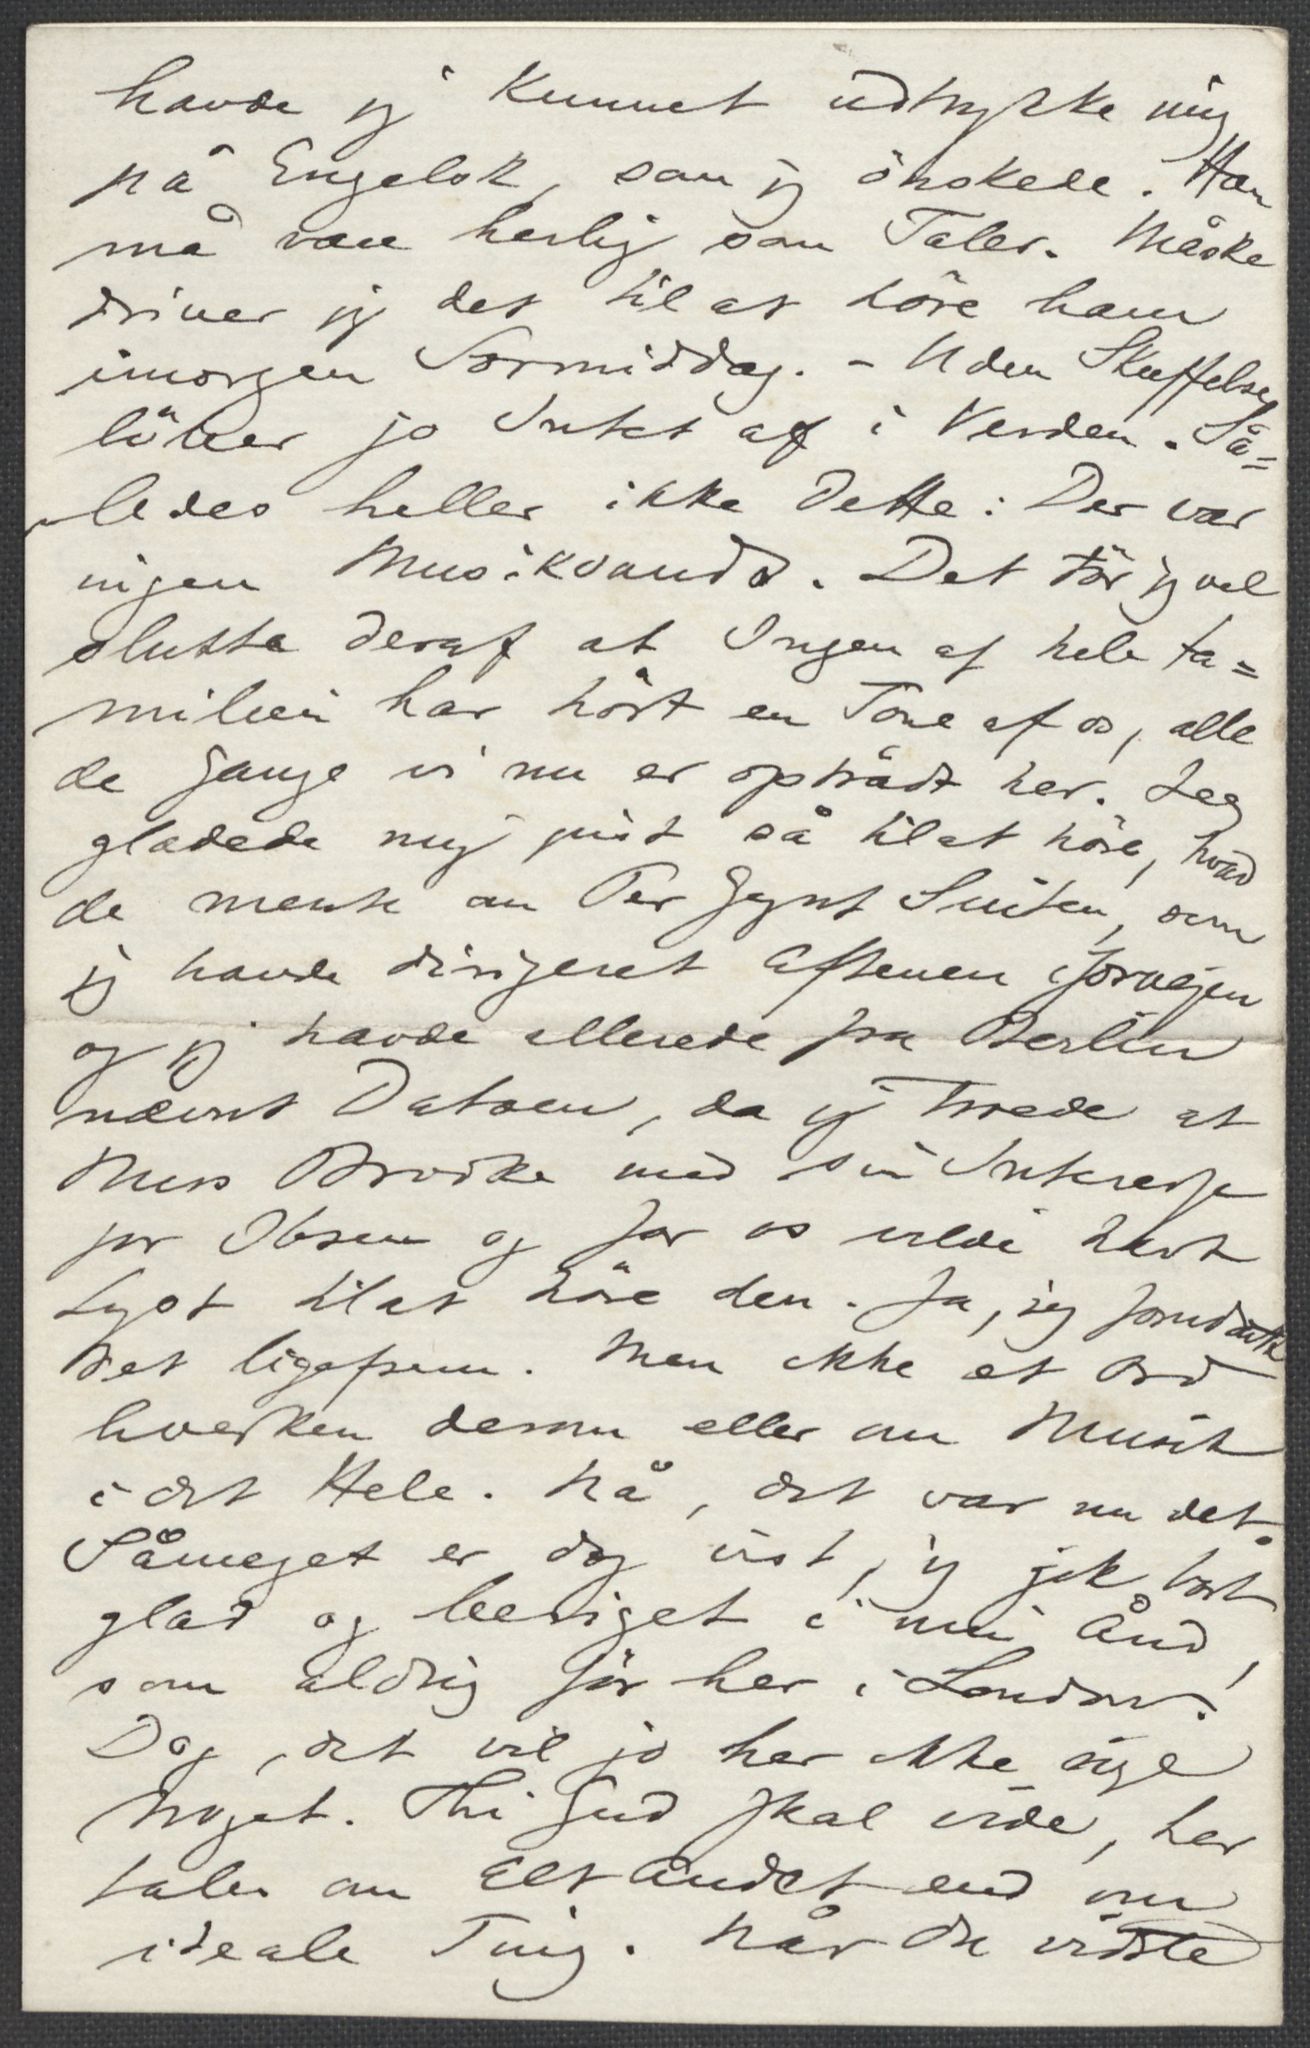 havde jeg kunnet udtrykke mig
på Engelsk, som jeg önskede. Han
må være herlig som Taler. Måske
driver jeg det til at höre ham
imorgen Formiddag. – Uden Skuffelse
löber jo Intet af i Verden. Så=
ledes heller ikke dette: Der var
ingen Musiksands. Det tör jeg vel
slutte deraf at Ingen af hele Fa=
milien har hört en Tone af os, alle
de Gange vi nu er optrådt her. Jeg
glædede mig just så til at höre, hvad
de mente om Per Gynt Suiten, som
jeg havde dirigeret Aftenen iforvejen
og jeg havde allerede fra Berlin
nævnt Datoen, da jeg troede at
Miss Brooke med sin Interesse
for Ibsen og for os vilde havt
Lyst til at höre den. Ja, jeg forudsatte
det ligefrem. Men ikke et Ord
hverken derom eller om Musik
i det Hele. Nå, det var nu det.
Såmeget er dog vist, jeg gik bort
glad og beriget i min Ånd,
som aldrig för her i London.
Dog, det vil jo her ikke sige
Noget. Thi Gud skal vide, her
tales om Alt andet end om
ideale Ting. Når du vidste